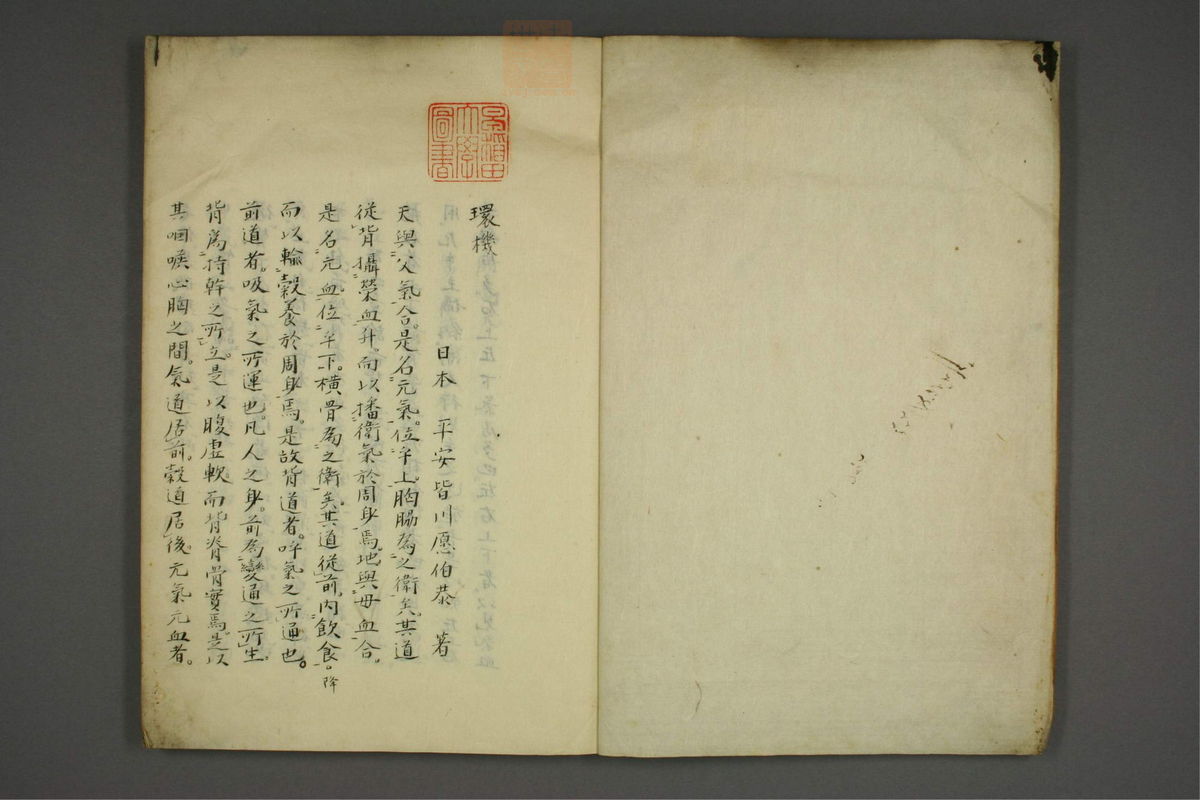 早稲田
大學
圖書
環機
日本 平安 皆川愿伯恭 著
天與父氣合。是名元氣。位乎上。胸膈為之衛矣。其道
從背攝榮血升。而以播衛氣於周身焉。地與母血合。
是名元血。位乎下。横骨為之衛矣。其道從前。内飲食。降
而以輸穀養於周身焉。是故背道者。呼氣之所通也。
前道者。吸氣之所運也。凡人之身。前為變通之所生。
背為持幹之所立。是以腹虚軟。而背脊骨實焉。是以
其咽喉心胸之間。氣道居前。穀道居後。元氣元血者。